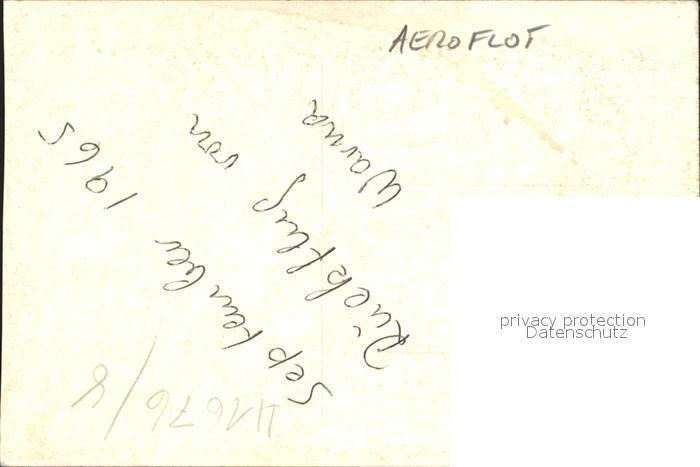 AEROFLOT
Rückflug von
Warna
September 1965
41676/8
privacy protection
Datenschutz